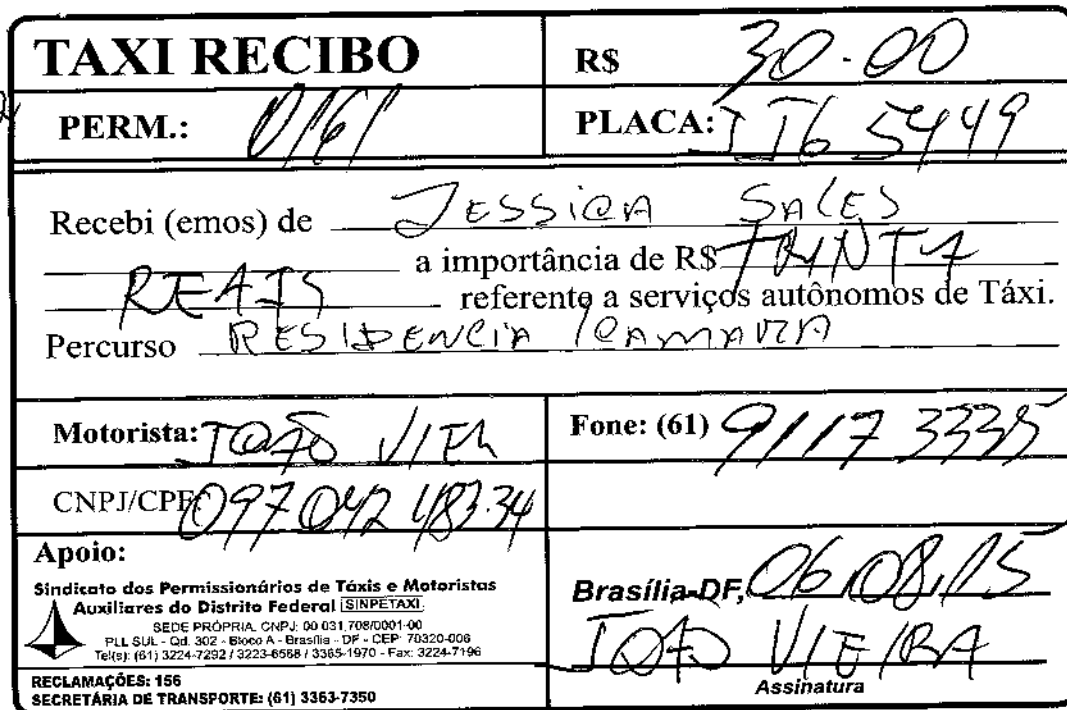 TAXI RECIBO
R$ 30.00
PERM.: 0161
PLACA: JJG 5449
Recebi (emos) de JESSICA SALES
a importância de R$ TRINTA
REAIS referente a serviços autônomos de Táxi.
Percurso RESIDENCIA / CAMARA
Motorista: JOÃO VIEIRA
Fone: (61) 9117 3335
CNPJ/CPF 097 042 483.34
Apoio:
Sindicato dos Permissionários de Táxis e Motoristas
Auxiliares do Distrito Federal SINPETAXI
SEDE PRÓPRIA. CNPJ: 00 031.708/0001-00
PLL SUL - Qd. 302 - Bloco A - Brasília - DF - CEP: 70320-006
Tel(s): (61) 3224-7292 / 3223-6568 / 3365-1970 - Fax: 3224-7196
RECLAMAÇÕES: 156
SECRETÁRIA DE TRANSPORTE: (61) 3363-7350
Brasília-DF, 06,08,15
JOÃO VIEIRA
Assinatura